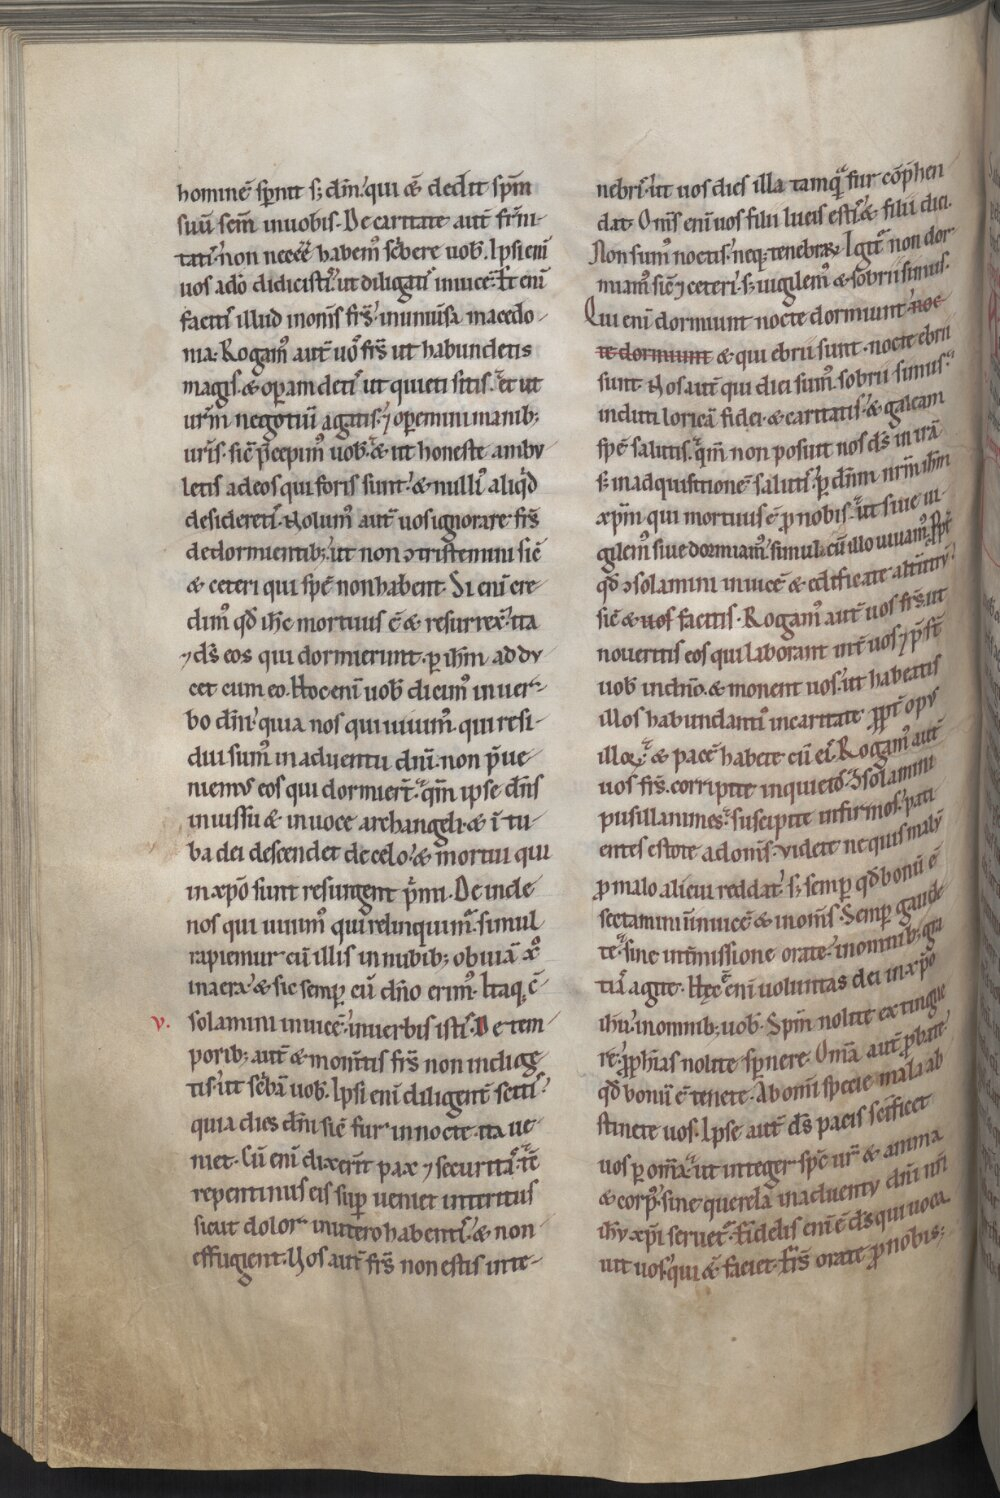 hominē sp̄nit s; dm̄. qui & dedit spm̄
suū scm̄ in uobis. De caritate aut̄ frn̄i-
tatꝭ. non necēē habem' sc̄bere uob̄. Ipsi eni
uos ado᷒ didicistꝭ. ut diligatꝭ inuicē. Et eni
facitꝭ illud in om̄s frs̄. in uniuūsa macedo-
nia. Rogam' aut̄ uo' frs̄ ut habundetis
magis. & opam detꝭ ut quieti sitis. et ut
urm̄ negotiū agatis. ⁊ operemini manib;
uris̄. sic̄ p̄cepim' uob̄. & ut honeste ambu
letis ad eos qui foris sunt. & nulli' aliqd̄
desideretꝭ. Nolum' aut̄ uos ignorare frs̄
de dormientib; ut non ↄtristemini sic̄
& ceteri qui spē non habent. Si eni cre-
dim' qd̄ ihc̄ mortuus ē & resurrex̄. ita
⁊ ds̄ eos qui dormierunt. p ihm̄ addu
cet cum eo. Hoc eni uob̄ dicim' in uer-
bo dni. quia nos qui uiuim'. qui resi-
dui sum' in aduentu dni. non p̄ue-
niem' eos qui dormiert̄. qm̄ ipse dn̄s
in iussu & in uoce archangeli. & ī tu-
ba dei descendet de celo. & mortui qui
in xpo sunt resurgent p̄mi. De inde
nos qui uiuim' qui relinquim᷑. simul
rapiemur cū illis in nubib; obuiā xo
in aera. & sic semp cū dn̄o erim'. Itaq; c̄
v. solamini inuicē. in uerbis istꝭ. De tem
porib; aut̄ & mom̄tis frs̄ non indige
tis. ut sc̄bā uob̄. Ipsi eni diligent̄ scitis
quia dies dn̄i sic̄ fur in nocte. ita ue
niet. Cū eni dixerīt pax ⁊ securita᷒. tē
repentinus eis sup ueniet interitus
sicut dolor in utero habentꝭ. & non
effugient. Vos aut̄ frs̄ non estis in te-
nebrꝭ. ut uos dies illa tamq̄ fur cōp̄hen
dat. Oms̄ eni uos filii lucis estꝭ & filii diei.
Non sum' noctis. neq; tenebraꝝ. Igit᷑ non dor
miam' sic̄ ⁊ ceteri. s; uigilem' & sobrii simus.
Qui eni dormiunt nocte dormiunt. noc
te dormiunt & qui ebrii sunt. nocte ebrii
sunt. Nos aut̄ qui diei sum'. sobrii simus.
induti loricā fidei. & caritatis. & galeam
spē salutis. qm̄ non posuit nos ds̄ in irā
s; in adquisitionē salutꝭ. p dn̄m nrm̄ ihm̄
xpm̄ qui mortuus ē p nobis. ut siue ui
gilem' siue dormiam'. simul cū illo uiuam'. Ppt̄
qd̄ ↄsolamini inuicē & edificate alt̄utrū.
sic̄ & uos facitis. Rogam' aut̄ uos frs̄. ut
noueritis eos qui laborant int̄ uos ⁊ p̄st̄
uob̄ in dn̄o. & monent uos. ut habeatis
illos habundanti' in caritate ppt̄ opus
illoꝝ. & pacē habete cū eꝭ. Rogam' aut̄
uos frs̄. corripite inquieto᷒. ↄsolamini
pusillanimes. suscipite infirmos. pati
entes estote ad oms̄. videte ne quis malū
p malo alicui reddat. s; semp qd̄ bonū ē
sectamini ininuicē & in oms̄. Semp gaude
te. sine int̄missione orate. in omnib; gra
tiā agite. Hęc eni uoluntas dei in xpo
ihu. in omnib; uob̄. Spm̄ nolite extingue
re. pphīas nolite sp̄nere. Omīa aut̄ pbate.
qd̄ bonū ē tenete. Ab omi specie mala ab
stinete uos. Ipse aut̄ ds̄ pacis scīficet
uos p omīa. ut integer spc̄ ur̄ & anima
& corp'. sine querela in aduentu dn̄i nri
ihu xpi seruet᷑. Fidelis eni ē ds̄ qui uoca
uit uos. qui & faciet. Frs̄ orate p nobis;